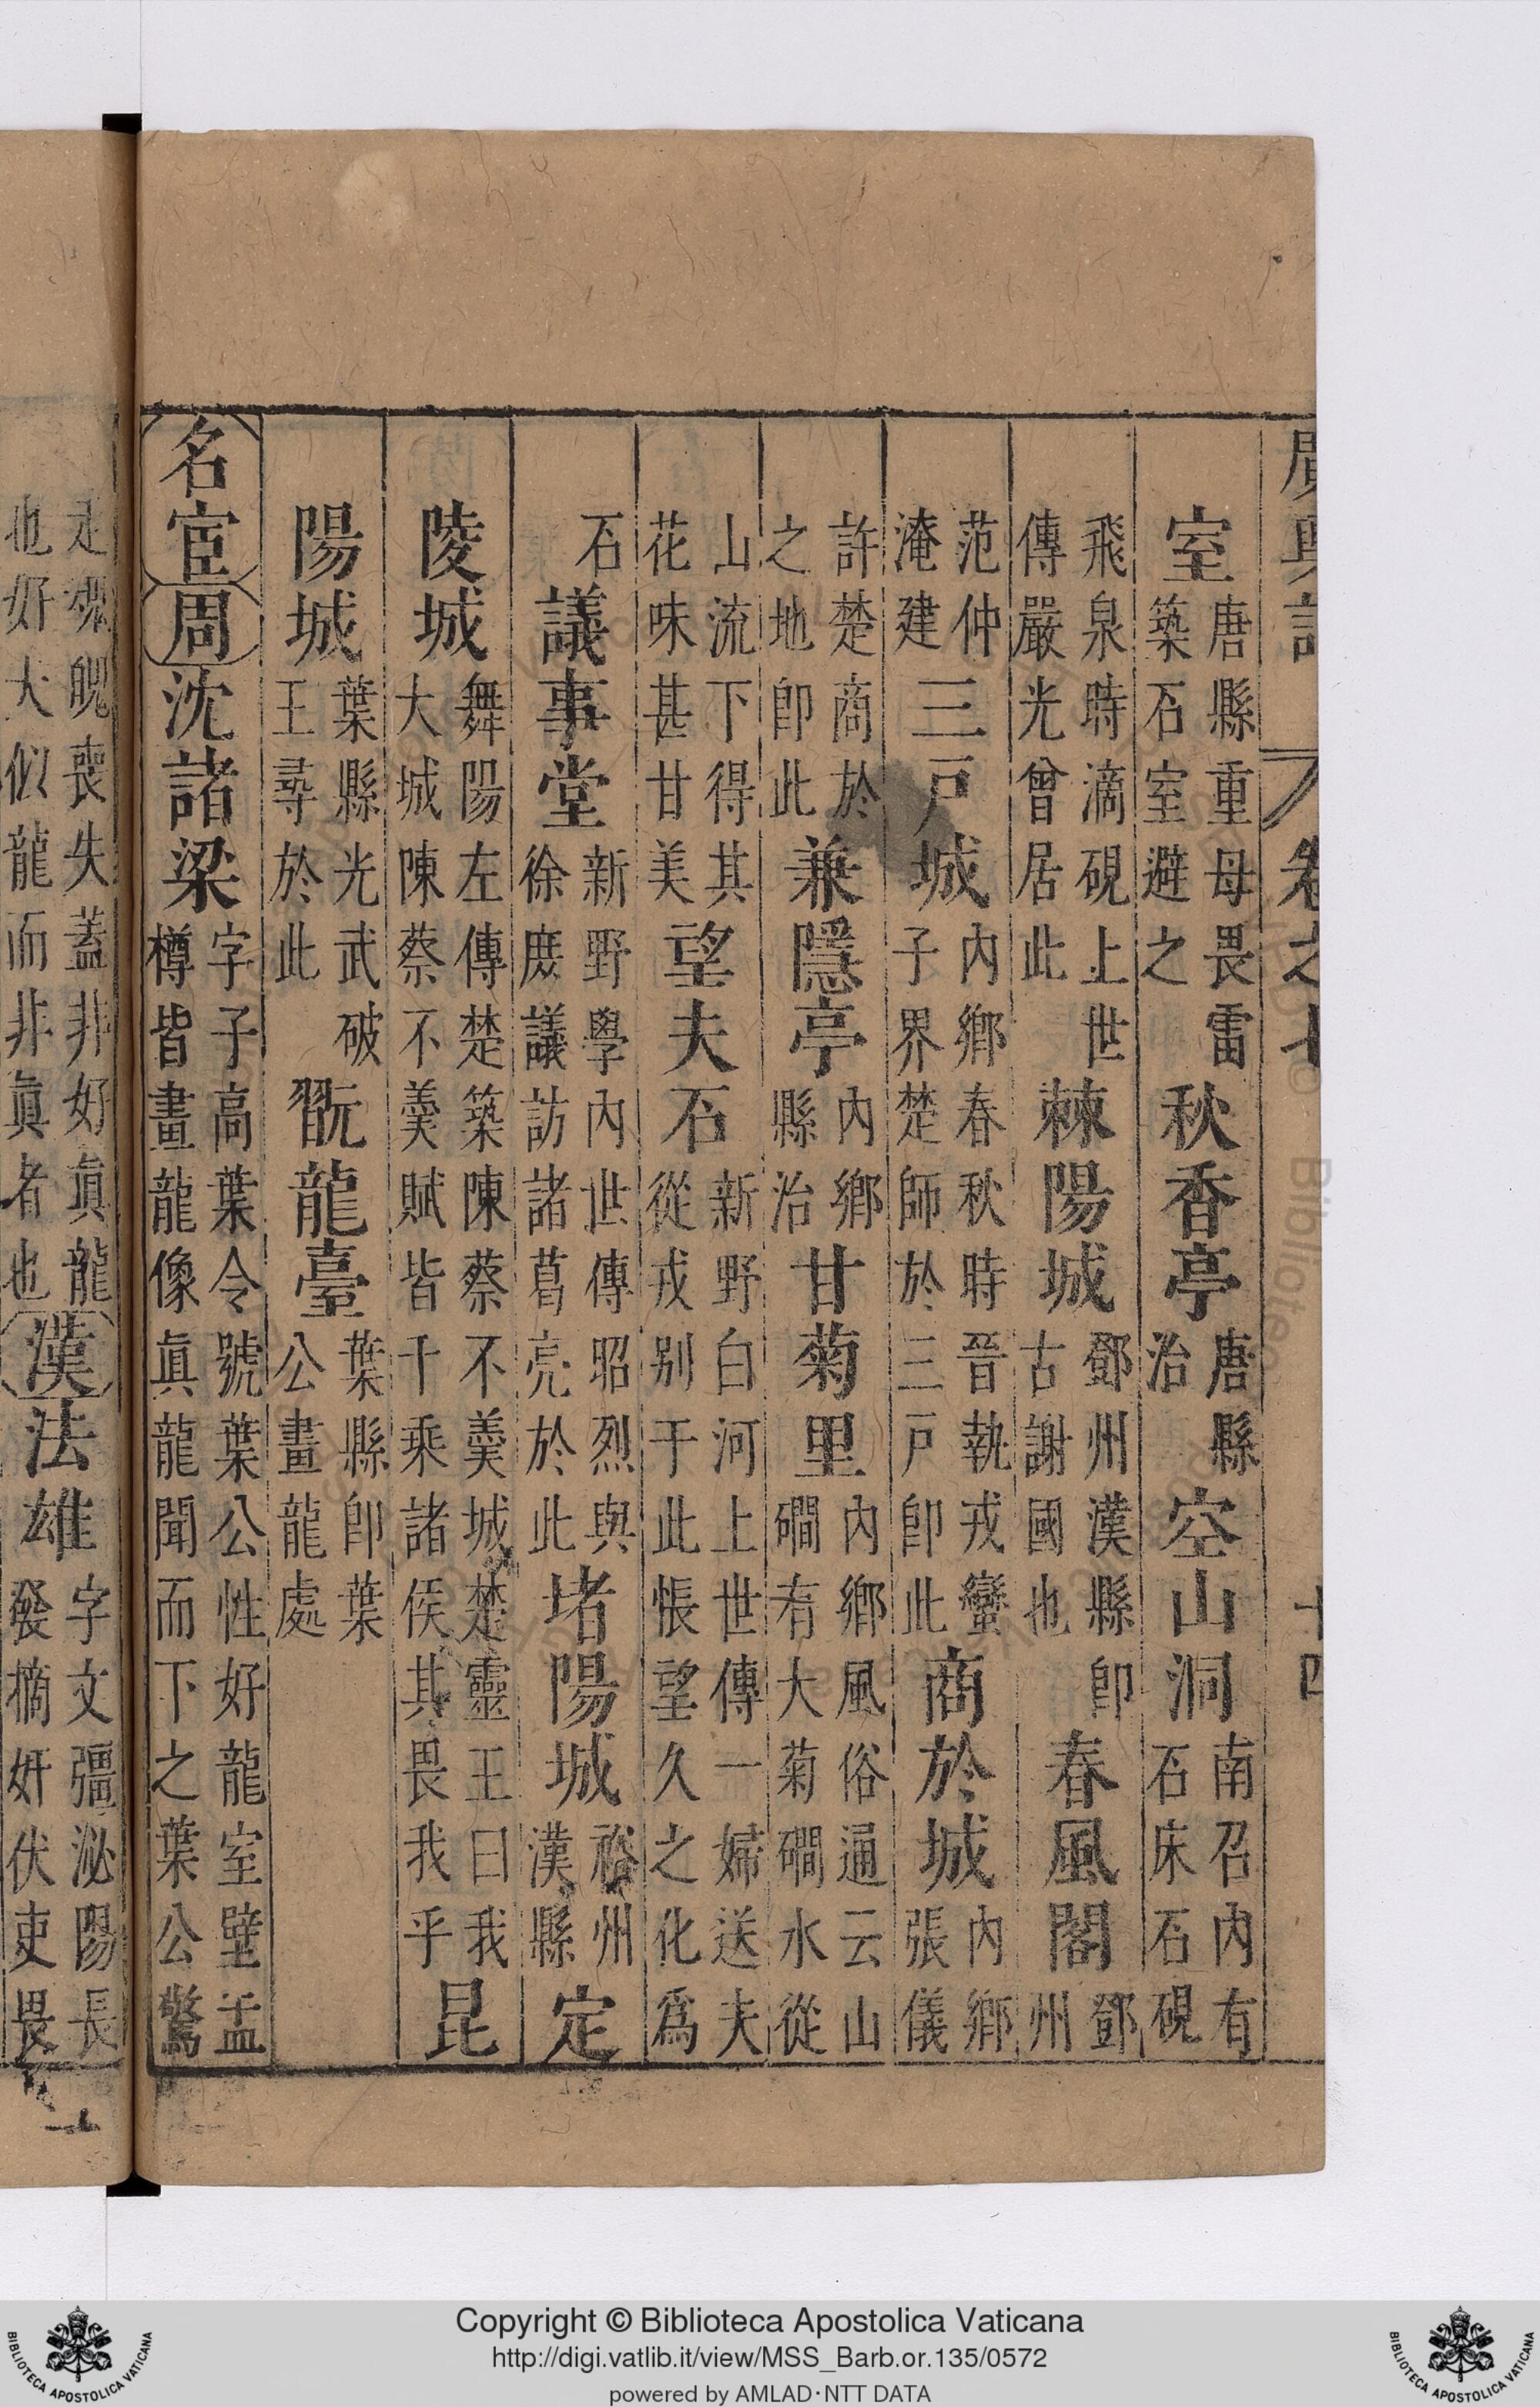 廣輿記 卷之七 十四
室唐縣重母畏雷築石室避之秋香亭唐縣治空山洞南召內有石床石硯
飛泉時滴硯上世傳嚴光曾居此棘陽城鄧州漢縣卽古謝國也春風閣鄧州
范仲淹建三戶城內鄉春秋時晉執戎蠻子界楚師於三戶卽此商於城內鄉張儀
許楚商於之地卽此兼隱亭內鄉縣治甘菊里內鄉風俗通云山磵有大菊磵水從
山流下得其花味甚甘美望夫石新野白河上世傳一婦送夫從戎别于此悵望久之化爲
石議事堂新野學內世傳昭烈與徐庶議訪諸葛亮於此堵陽城裕州漢縣定
陵城舞陽左傳楚築陳蔡不羹城楚靈王曰我大城陳蔡不羹賦皆千乘諸侯其畏我乎昆
陽城葉縣光武破王尋於此翫龍臺葉縣卽葉公畫龍處
名宦周沈諸梁字子高葉令號葉公性好龍室壁盂樽皆畫龍像眞龍聞而下之葉公驚
走魂魄喪失蓋非好眞龍也好夫似龍而非眞者也漢法雄字文彊泌陽長發摘奸伏吏畏
Copyright © Biblioteca Apostolica Vaticana
http://digi.vatlib.it/view/MSS_Barb.or.135/0572
powered by AMLAD·NTT DATA
BIBLIOTECA APOSTOLICA VATICANA
BIBLIOTECA APOSTOLICA VATICANA